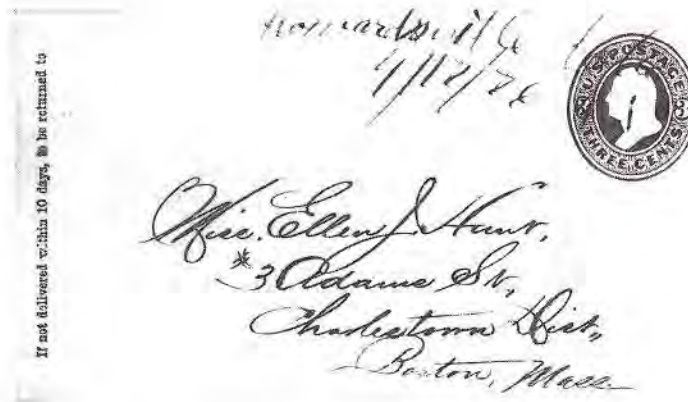 If not delivered within 10 days, to be returned to
Howardsville
U.S. POSTAGE
THREE CENTS
3 3
Miss. Ellen J. Hunt,
3 Adams St,
Charlestown Dist,,
Boston, Mass.